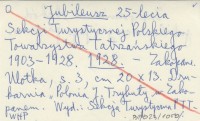 Jubileusz 25-lecia
Sekcji Turystycznej Polskiego
Towarzystwa Tatrzańskiego
1903-1928. 1928. - Zakopane.
Ulotka, s. 3, cm 20 x 13. Dru-
karnia „Polonia" J. Trybuły w Zako-
panem. Wyd.: Sekcja Turystyczna PTT.
WHP